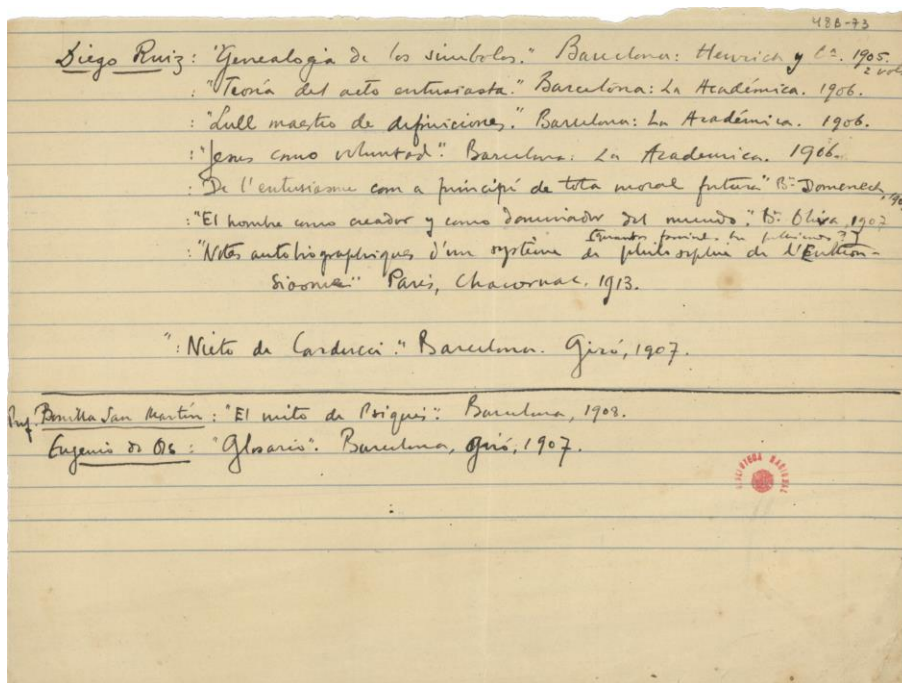 48B-73
Diego Ruiz: "Genealogía de los símbolos." Barcelona: Henrich y Cª. 1905.
2 vols
: "Teoría del acto entusiasta." Barcelona: La Académica. 1906.
: "Lull maestro de definiciones." Barcelona: La Académica. 1906.
: "Jesus como voluntad". Barcelona: La Academica. 1906.
: De l'entusiasme com a principi de tota moral futura" Bª Domenech,
: "El hombre como creador y como dominador del mundo." Bª. Oliva 1907
: "Notes autobiographiques d'un système de philosophie de l'Enthou-
siasme" Paris, Chacornac. 1913.
": Nieto de Carducci." Barcelona. Giró, 1907.
Prof. Bonilla San Martín: "El mito de Psiquis". Barcelona, 1908.
Eugenio d'Ors: "Glosario". Barcelona, Giró, 1907.
BIBLIOTECA NACIONAL